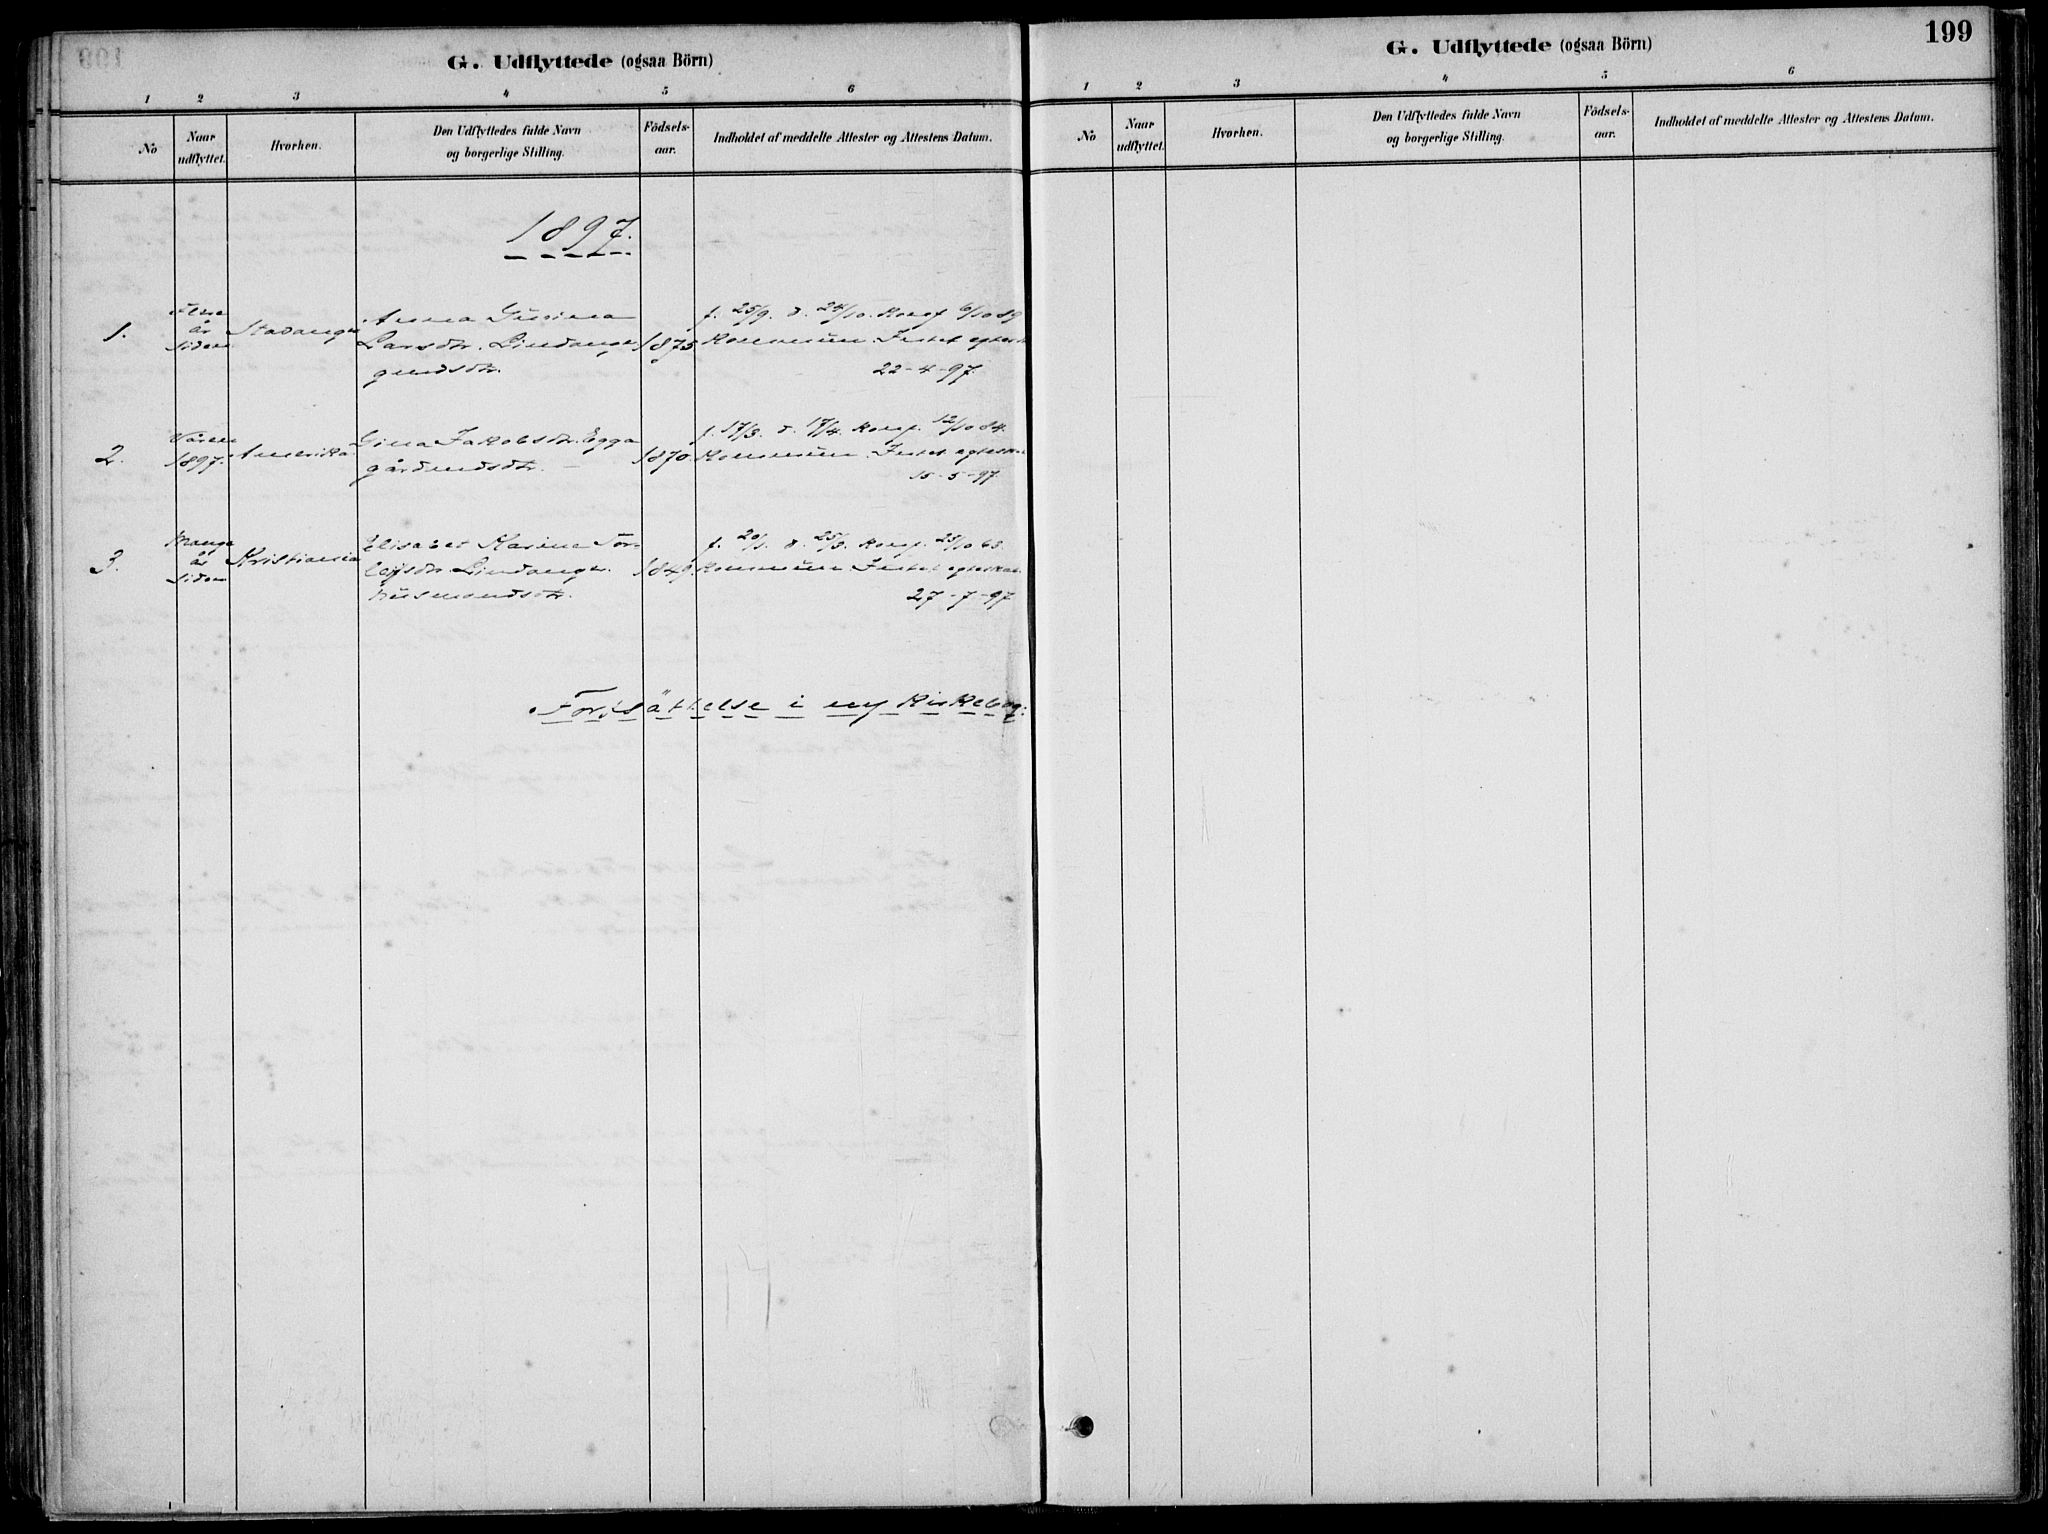 G. Udflyttede (ogsaa Börn)
1 2 3 4 5 6
No
Naar
udflyttet.
Hvorhen.
Den Udflyttedes fulde Navn
og borgerlige Stilling.
Födsels-
aar.
Indholdet af meddelte Attester og Attestens Datum.
1897.
1.
Flere
år
siden
Stavanger
Anna Gurina
Larsdtr. Lindanger
gmdsdtr.
1875
f. 25/9. d. 24/10. Konf 6/10 89
Kommun. Intet egtesk
22-4-97.
2.
Våren
1897.
Amerika
Gina Jakobsdtr. Egga
gårdmdsdtr.
1870
f. 17/3. d. 17/4. Konf. 12/10 84.
Kommun. Intet egtesk.
15-5-97
3.
Mange
år
siden
Kristiania
Elisabet Karina Tor-
leifsdtr. Lindanger.
Husmandsdtr.
1849.
f. 20/1. d. 25/3. Konf. 25/10 63.
Kommun. Intet egteskab.
27-7-97
Fortsättelse i ny Kirkebog.
G. Udflyttede (ogsaa Börn)
199
1 2 3 4 5 6
No
Naar
udflyttet.
Hvorhen.
Den Udflyttedes fulde Navn
og borgerlige Stilling.
Födsels-
aar.
Indholdet af meddelte Attester og Attestens Datum.